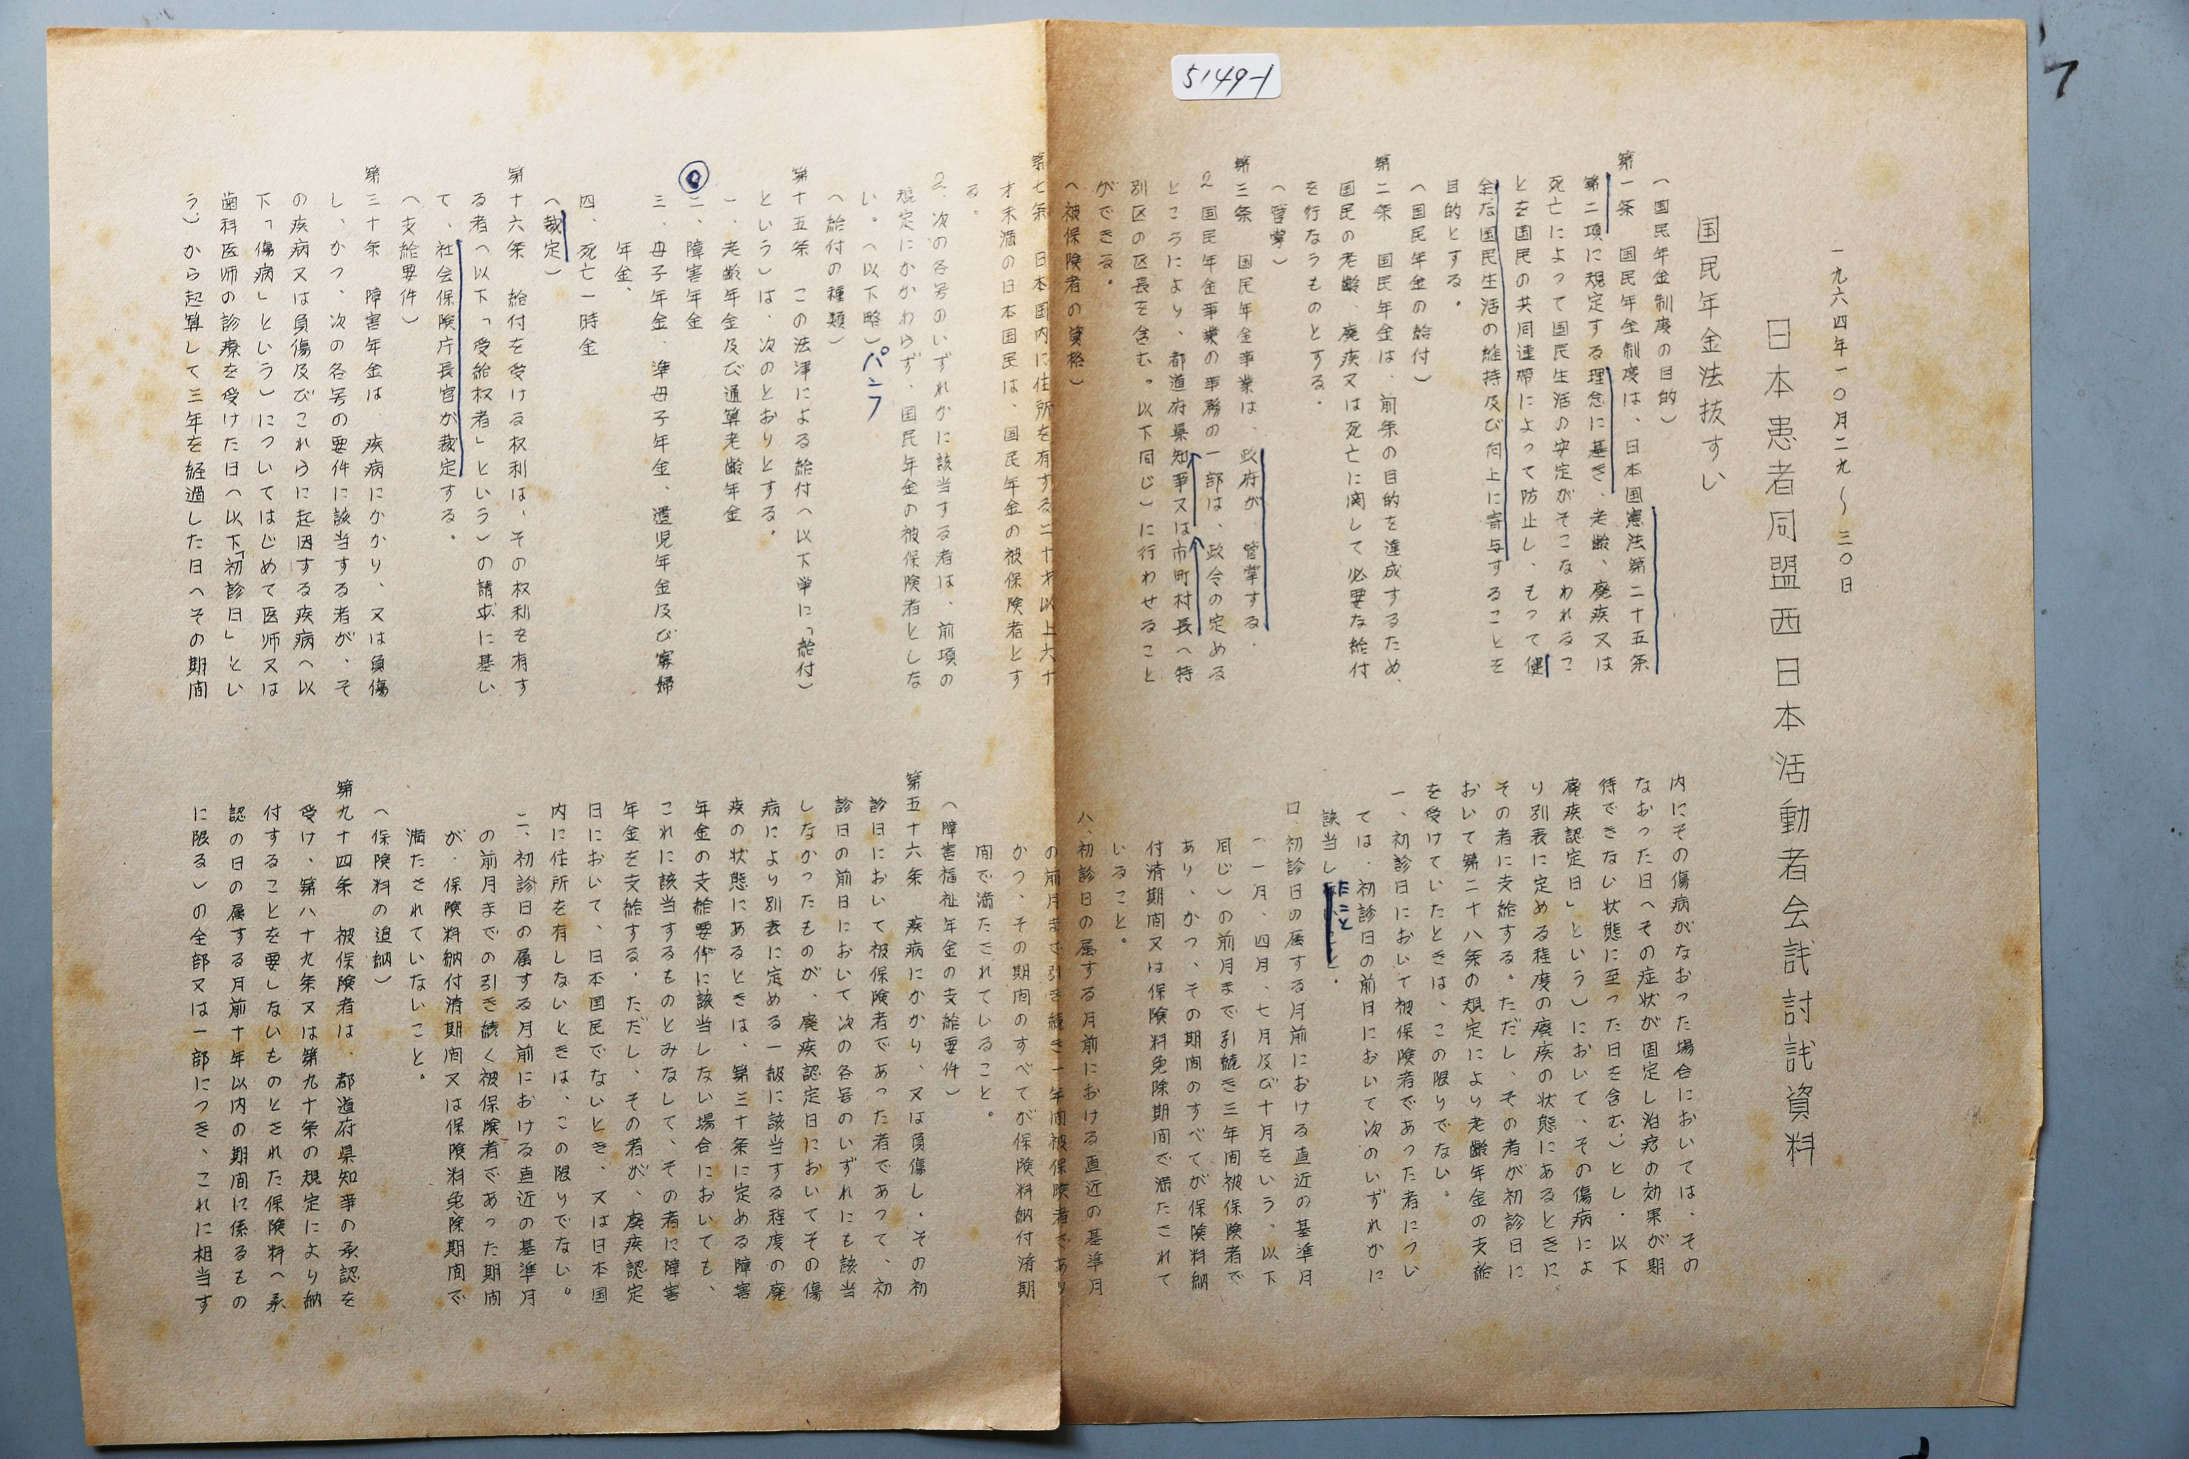 5149-1
7
一九六四年一〇月二九〜三〇日
日本患者同盟西日本活動者会試討試資料
国民年金法抜すい
(国民年金制度の目的)
第一条 国民年金制度は、日本国憲法第二十五条
第二項に規定する理念に基き、老齢、廃疾又は
死亡によって国民生活の安定がそこなわれるこ
とを国民の共同連帯によって防止し、もって健
全な国民生活の維持及び向上に寄与することを
目的とする。
(国民年金の給付)
第二条 国民年金は、前条の目的を達成するため、
国民の老齢、廃疾又は死亡に関して必要な給付
を行なうものとする。
(管掌)
第三条 国民年金事業は、政府が、管掌する.
2 国民年金事業の事務の一部は、政令の定める
ところにより、都道府県知事又は市町村長(特
別区の区長を含む。以下同じ)に行わせること
ができる。
(被保険者の資格)
第七条 日本国内に住所を有する二十才以上六十
才未満の日本国民は、国民年金の被保険者とす
る。
2. 次の各号のいずれかに該当する者は、前項の
規定にかかわらず、国民年金の被保険者としな
い。(以下略)パンフ
(給付の種類)
第十五条 この法律による給付(以下単に「給付」
という)は、次のとおりとする。
一、老齢年金及び通算老齢年金
二、障害年金
三、母子年金、準母子年金、遺児年金及び寡婦
年金、
四、死亡一時金
(裁定)
第十六条 給付を受ける权利は、その权利を有す
る者(以下「受給权者」という)の請求に基い
て、社会保険庁長官が裁定する。
(支給要件)
第三十条 障害年金は、疾病にかかり、又は負傷
し、かつ、次の各号の要件に該当する者が、そ
の疾病又は負傷及びこれらに起因する疾病(以
下「傷病」という)についてはじめて医师又は
歯科医师の診療を受けた日(以下「初診日」とい
う)から起算して三年を経過した日(その期間
内にその傷病がなおった場合においては、その
なおった日(その症状が固定し治疗の効果が期
待できない状態に至った日を含む)とし、以下
廃疾認定日」という)において、その傷病によ
り別表に定める程度の廃疾の状態にあるときに
その者に支給する。ただし、その者が初診日に
おいて第二十八条の規定により老齢年金の支給
を受けていたときは、この限りでない。
一、初診日において被保険者であった者につい
ては、初診日の前日において次のいずれかに
該当し
ロ、初診日の属する月前における直近の基準月
(一月、四月、七月及び十月をいう、以下
同じ)の前月まで引続き三年間被保険者で
あり、かつ、その期間のすべてが保険料納
付済期間又は保険料免除期間で満たされて
いること。
ハ、初診日の属する月前における直近の基準月
の前月まで引き続き一年間被保険者であり、
かつ、その期間のすべてが保険料納付済期
間で満たされていること。
(障害福祉年金の支給要件)
第五十六条 疾病にかかり、又は負傷し、その初
診日において被保険者であった者であって、初
診日の前日において次の各号のいずれにも該当
しなかったものが、廃疾認定日においてその傷
病により別表に定める一級に該当する程度の廃
疾の状態にあるときは、第三十条に定める障害
年金の支給要件に該当しない場合においても、
これに該当するものとみなして、その者に障害
年金を支給する.ただし、その者が、廃疾認定
日において、日本国民でないとき、又は日本国
内に住所を有しないときは、この限りでない。
二、初診日の属する月前における直近の基準月
の前月までの引き続く被保険者であった期間
が、保険料納付済期間又は保険料免除期間で
満たされていないこと。
(保険料の追納)
第九十四条 被保険者は、都道府県知事の承認を
受け、第八十九条又は第九十条の規定により納
付することを要しないものとされた保険料(承
認の日の属する月前十年以内の期間に係るもの
に限る)の全部又は一部につき、これに相当す